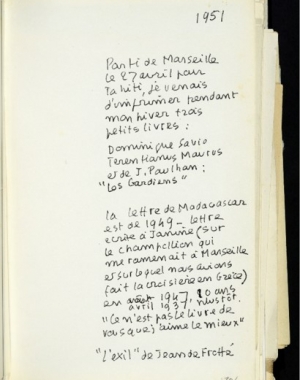 1951
Parti de Marseille
le 27 avril pour
Tahiti, je venais
d'imprimer pendant
mon hiver trois
petits livres :
Dominique Savio
Terentianus Maurus
et de J. Paulhan :
"Les Gardiens"
la lettre de Madagascar
est de 1949 - lettre
écrite à Janine (sur
le Champollion qui
me ramenait à Marseille
et sur lequel nous avions
fait la croisière en Grèce)
en 1947, 10 ans
avril 1937 plustôt.
"Ce n'est pas le livre de
vous que j'aime le mieux"
"L'exil" de Jean de Frotté